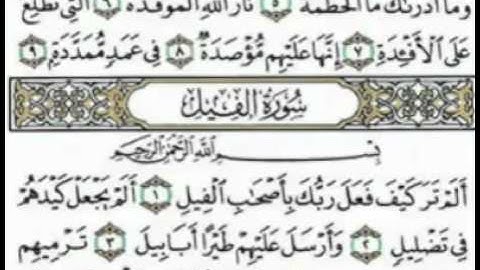 وَمَا أَدْرَىٰكَ مَا الْحُطَمَةُ ٥ نَارُ اللَّهِ الْمُوقَدَةُ ٦ الَّتِي تَطَّلِعُ
عَلَى الْأَفْئِدَةِ ٧ إِنَّهَا عَلَيْهِم مُّؤْصَدَةٌ ٨ فِي عَمَدٍ مُّمَدَّدَةٍ ٩
سُورَةُ الْفِيلِ
بِسْمِ اللَّهِ الرَّحْمَٰنِ الرَّحِيمِ
أَلَمْ تَرَ كَيْفَ فَعَلَ رَبُّكَ بِأَصْحَابِ الْفِيلِ ١ أَلَمْ يَجْعَلْ كَيْدَهُمْ
فِي تَضْلِيلٍ ٢ وَأَرْسَلَ عَلَيْهِمْ طَيْرًا أَبَابِيلَ ٣ تَرْمِيهِم